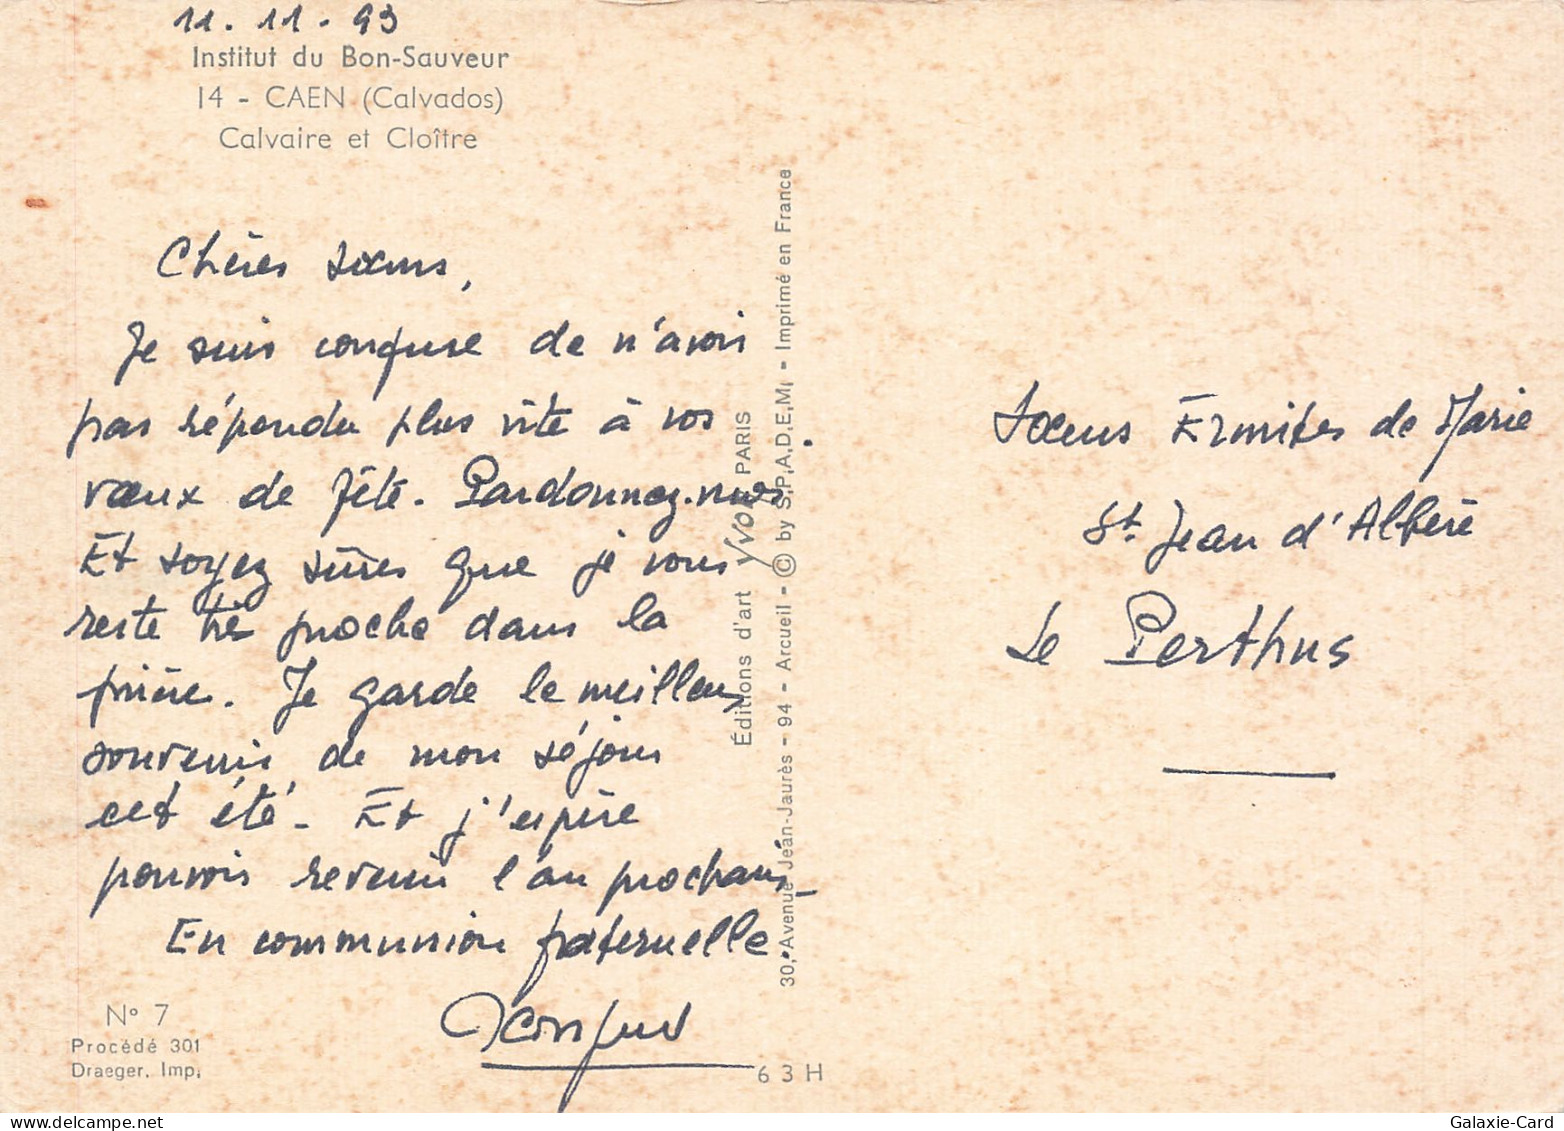 11.11.93
Institut du Bon-Sauveur
14 - CAEN (Calvados)
Calvaire et Cloître
Chères sœurs,
Je suis confuse de n'avoir
pas répondu plus vite à vos
vœux de fête. Pardonnez-moi.
Et soyez sûres que je vous
reste très proche dans la
prière. Je garde le meilleur
souvenir de mon séjour
cet été. Et j'espère
pouvoir revenir l'an prochain.
En communion fraternelle.
N° 7
Procédé 301
Draeger. Imp.
63H
Éditions d'art YVON PARIS
30, Avenue Jean-Jaurès - 94 - Arcueil - © by S.P.A.D.E.M. - Imprimé en France
Sœurs Ermites de Marie
St Jean d'Albère
Le Perthus
Galaxie-Card